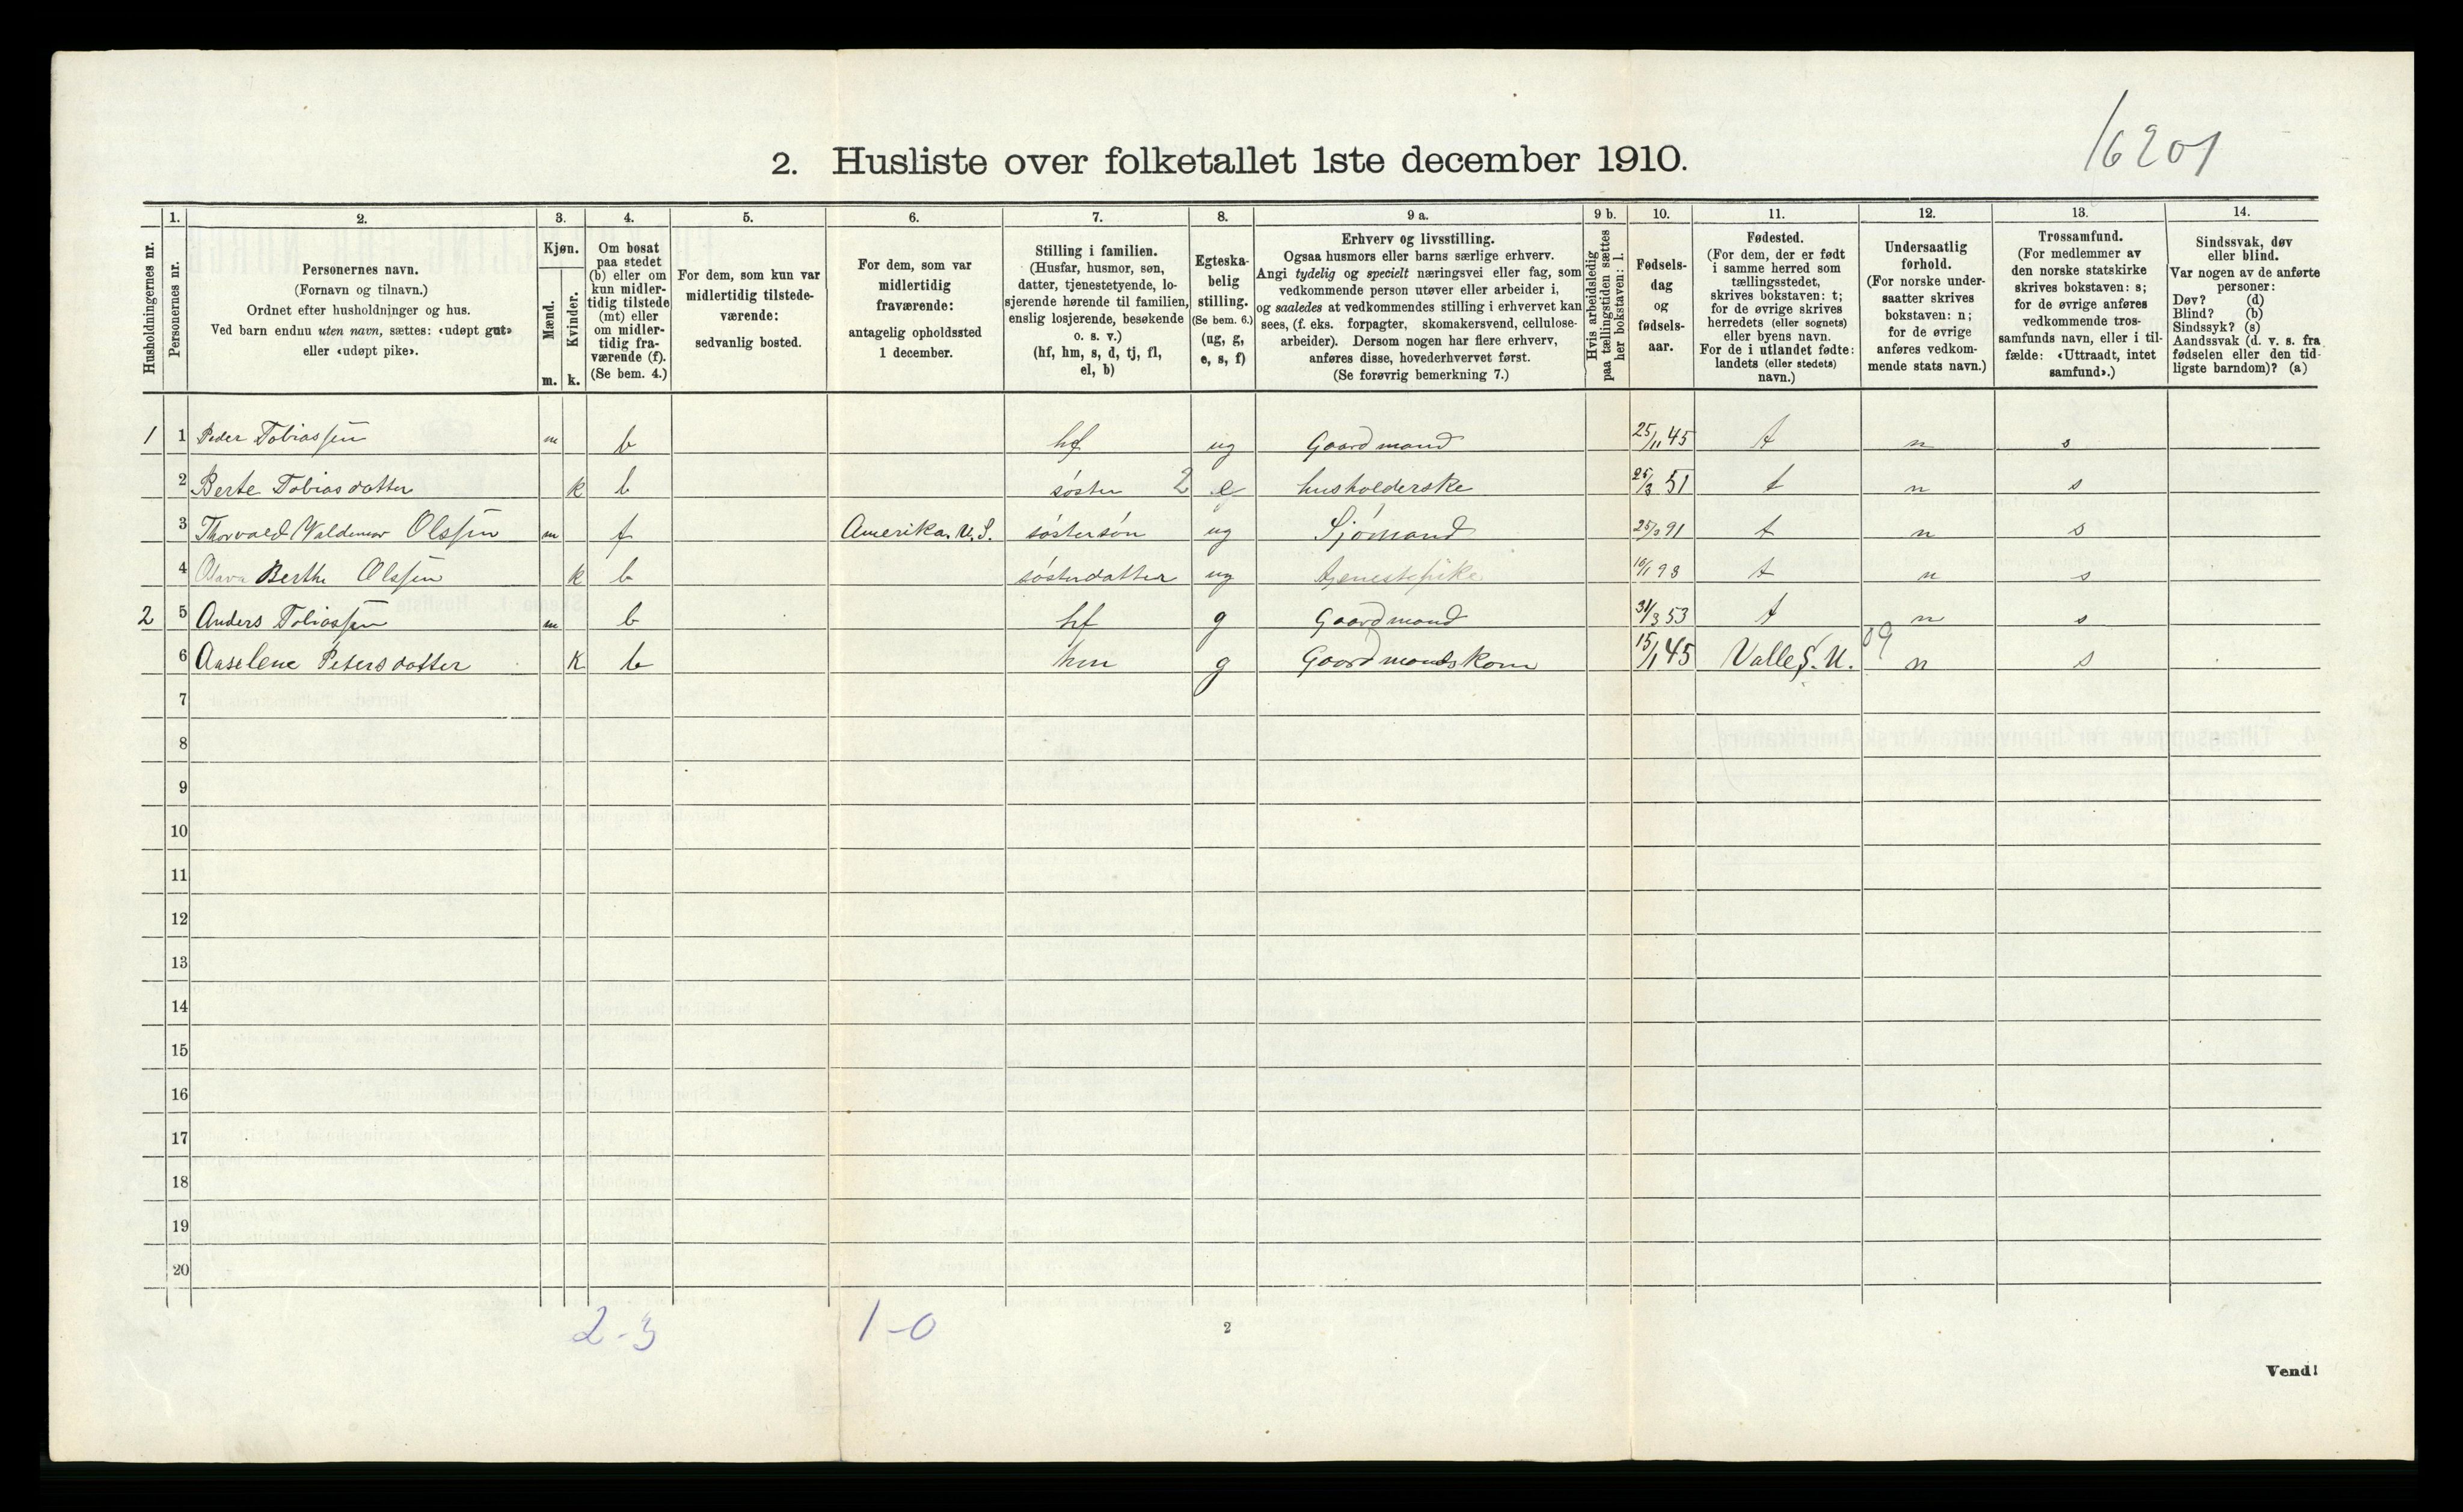 16201
2. Husliste over folketallet 1ste december 1910.
Husholdningernes nr.
1. Personernes nr.
2. Personernes navn. (Fornavn og tilnavn.) Ordnet efter husholdninger og hus. Ved barn endnu uten navn, sættes: «udøpt gut» eller «udøpt pike».
3. Kjøn. Mænd. m. Kvinder. k.
4. Om bosat paa stedet (b) eller om kun midlertidig tilstede (mt) eller om midlertidig fraværende (f). (Se bem. 4.)
5. For dem, som kun var midlertidig tilstedeværende: sedvanlig bosted.
6. For dem, som var midlertidig fraværende: antagelig opholdssted 1 december.
7. Stilling i familien. (Husfar, husmor, søn, datter, tjenestetyende, losjerende hørende til familien, enslig losjerende, besøkende o. s. v.) (hf, hm, s, d, tj, fl, el, b)
8. Egteskabelig stilling. (Se bem. 6.) (ug, g, e, s, f)
9 a. Erhverv og livsstilling. Ogsaa husmors eller barns særlige erhverv. Angi tydelig og specielt næringsvei eller fag, som vedkommende person utøver eller arbeider i, og saaledes at vedkommendes stilling i erhvervet kan sees, (f. eks. forpagter, skomakersvend, cellulose-arbeider). Dersom nogen har flere erhverv, anføres disse, hovederhvervet først. (Se forøvrig bemerkning 7.)
9 b. Hvis arbeidsledig paa tællingstiden sættes her bokstaven: l.
10. Fødsels-dag og fødsels-aar.
11. Fødested. (For dem, der er født i samme herred som tællingsstedet, skrives bokstaven: t; for de øvrige skrives herredets (eller sognets) eller byens navn. For de i utlandet fødte: landets (eller stedets) navn.)
12. Undersaatlig forhold. (For norske undersaatter skrives bokstaven: n; for de øvrige anføres vedkommende stats navn.)
13. Trossamfund. (For medlemmer av den norske statskirke skrives bokstaven: s; for de øvrige anføres vedkommende trossamfunds navn, eller i tilfælde: «Uttraadt, intet samfund».)
14. Sindssvak, døv eller blind. Var nogen av de anførte personer: Døv? (d) Blind? (b) Sindssyk? (s) Aandssvak (d. v. s. fra fødselen eller den tidligste barndom)? (a)
1 1 Peder Tobiassen m b hf ug Gaardmand 25/11 45 t n s
2 Berte Tobiasdatter k b søster 2 e husholderske 25/3 51 t n s
3 Thorvald Valdemar Olssen m f Amerika. U.S. søstersøn ug Sjømand 25/3 91 t n s
4 Berthe Olssen k b søsterdatter ug tjenestepike 10/1 98 t n s
2 5 Anders Tobiassen m b hf g Gaardmand 31/3 53 t n s
6 Aaselene Petersdatter k b hm g Gaardmandskone 15/1 45 Valle S. U. 09 n s
7
8
9
10
11
12
13
14
15
16
17
18
19
20
2-3 1-0
2
Vend!